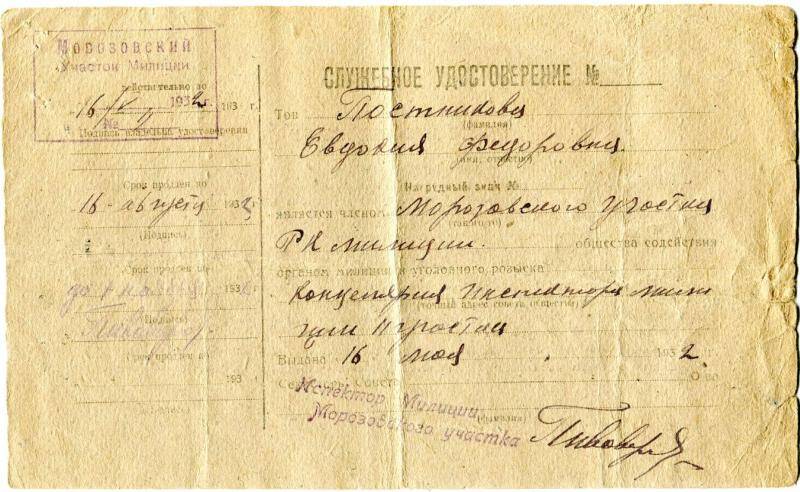 Морозовский
Участок Милиции
действительно до
16/V 1932г. 193 г.
№
Подпись владельца удостоверения
Срок продлен до
16 августа 193
(Подпись)
Срок продлен до
до 1 193
(Подпись)
Срок продлен до
193 г.
(Подпись)
СЛУЖЕБНОЕ УДОСТОВЕРЕНИЕ №
Тов Постникова
(фамилия)
Евдокия Федоровна
(имя, отчество)
Нагрудный знак №
является членом Морозовского участка
РК милиции. общества содействия
органом милиции и уголовного розыска
Концелярия Инспектора мили
(точный адрес совета общества)
ции участка
Выдано 16 мая 1932.
Инспектор Милиции
Морозовского участка
(фамилия)